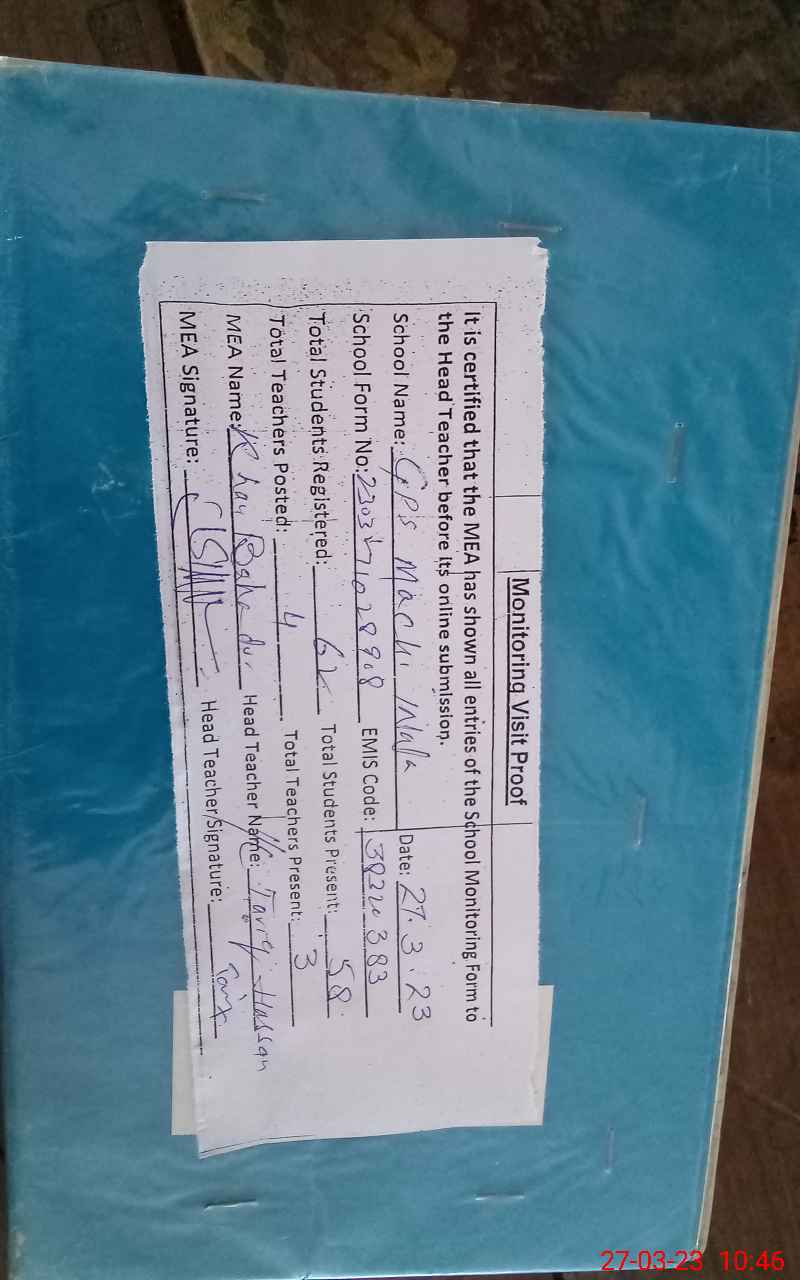 Monitoring Visit Proof
It is certified that the MEA has shown all entries of the School Monitoring Form to
the Head Teacher before its online submission.
School Name: GPS Machi Walla Date: 27.3.23
School Form No: EMIS Code: 38220383
Total Students Registered: 62 Total Students Present: 58
Total Teachers Posted: 4 Total Teachers Present: 3
MEA Name: Khan Bahadur Head Teacher Name: Tariq Hassan
MEA Signature: Head Teacher Signature:
27-03-23 10:46